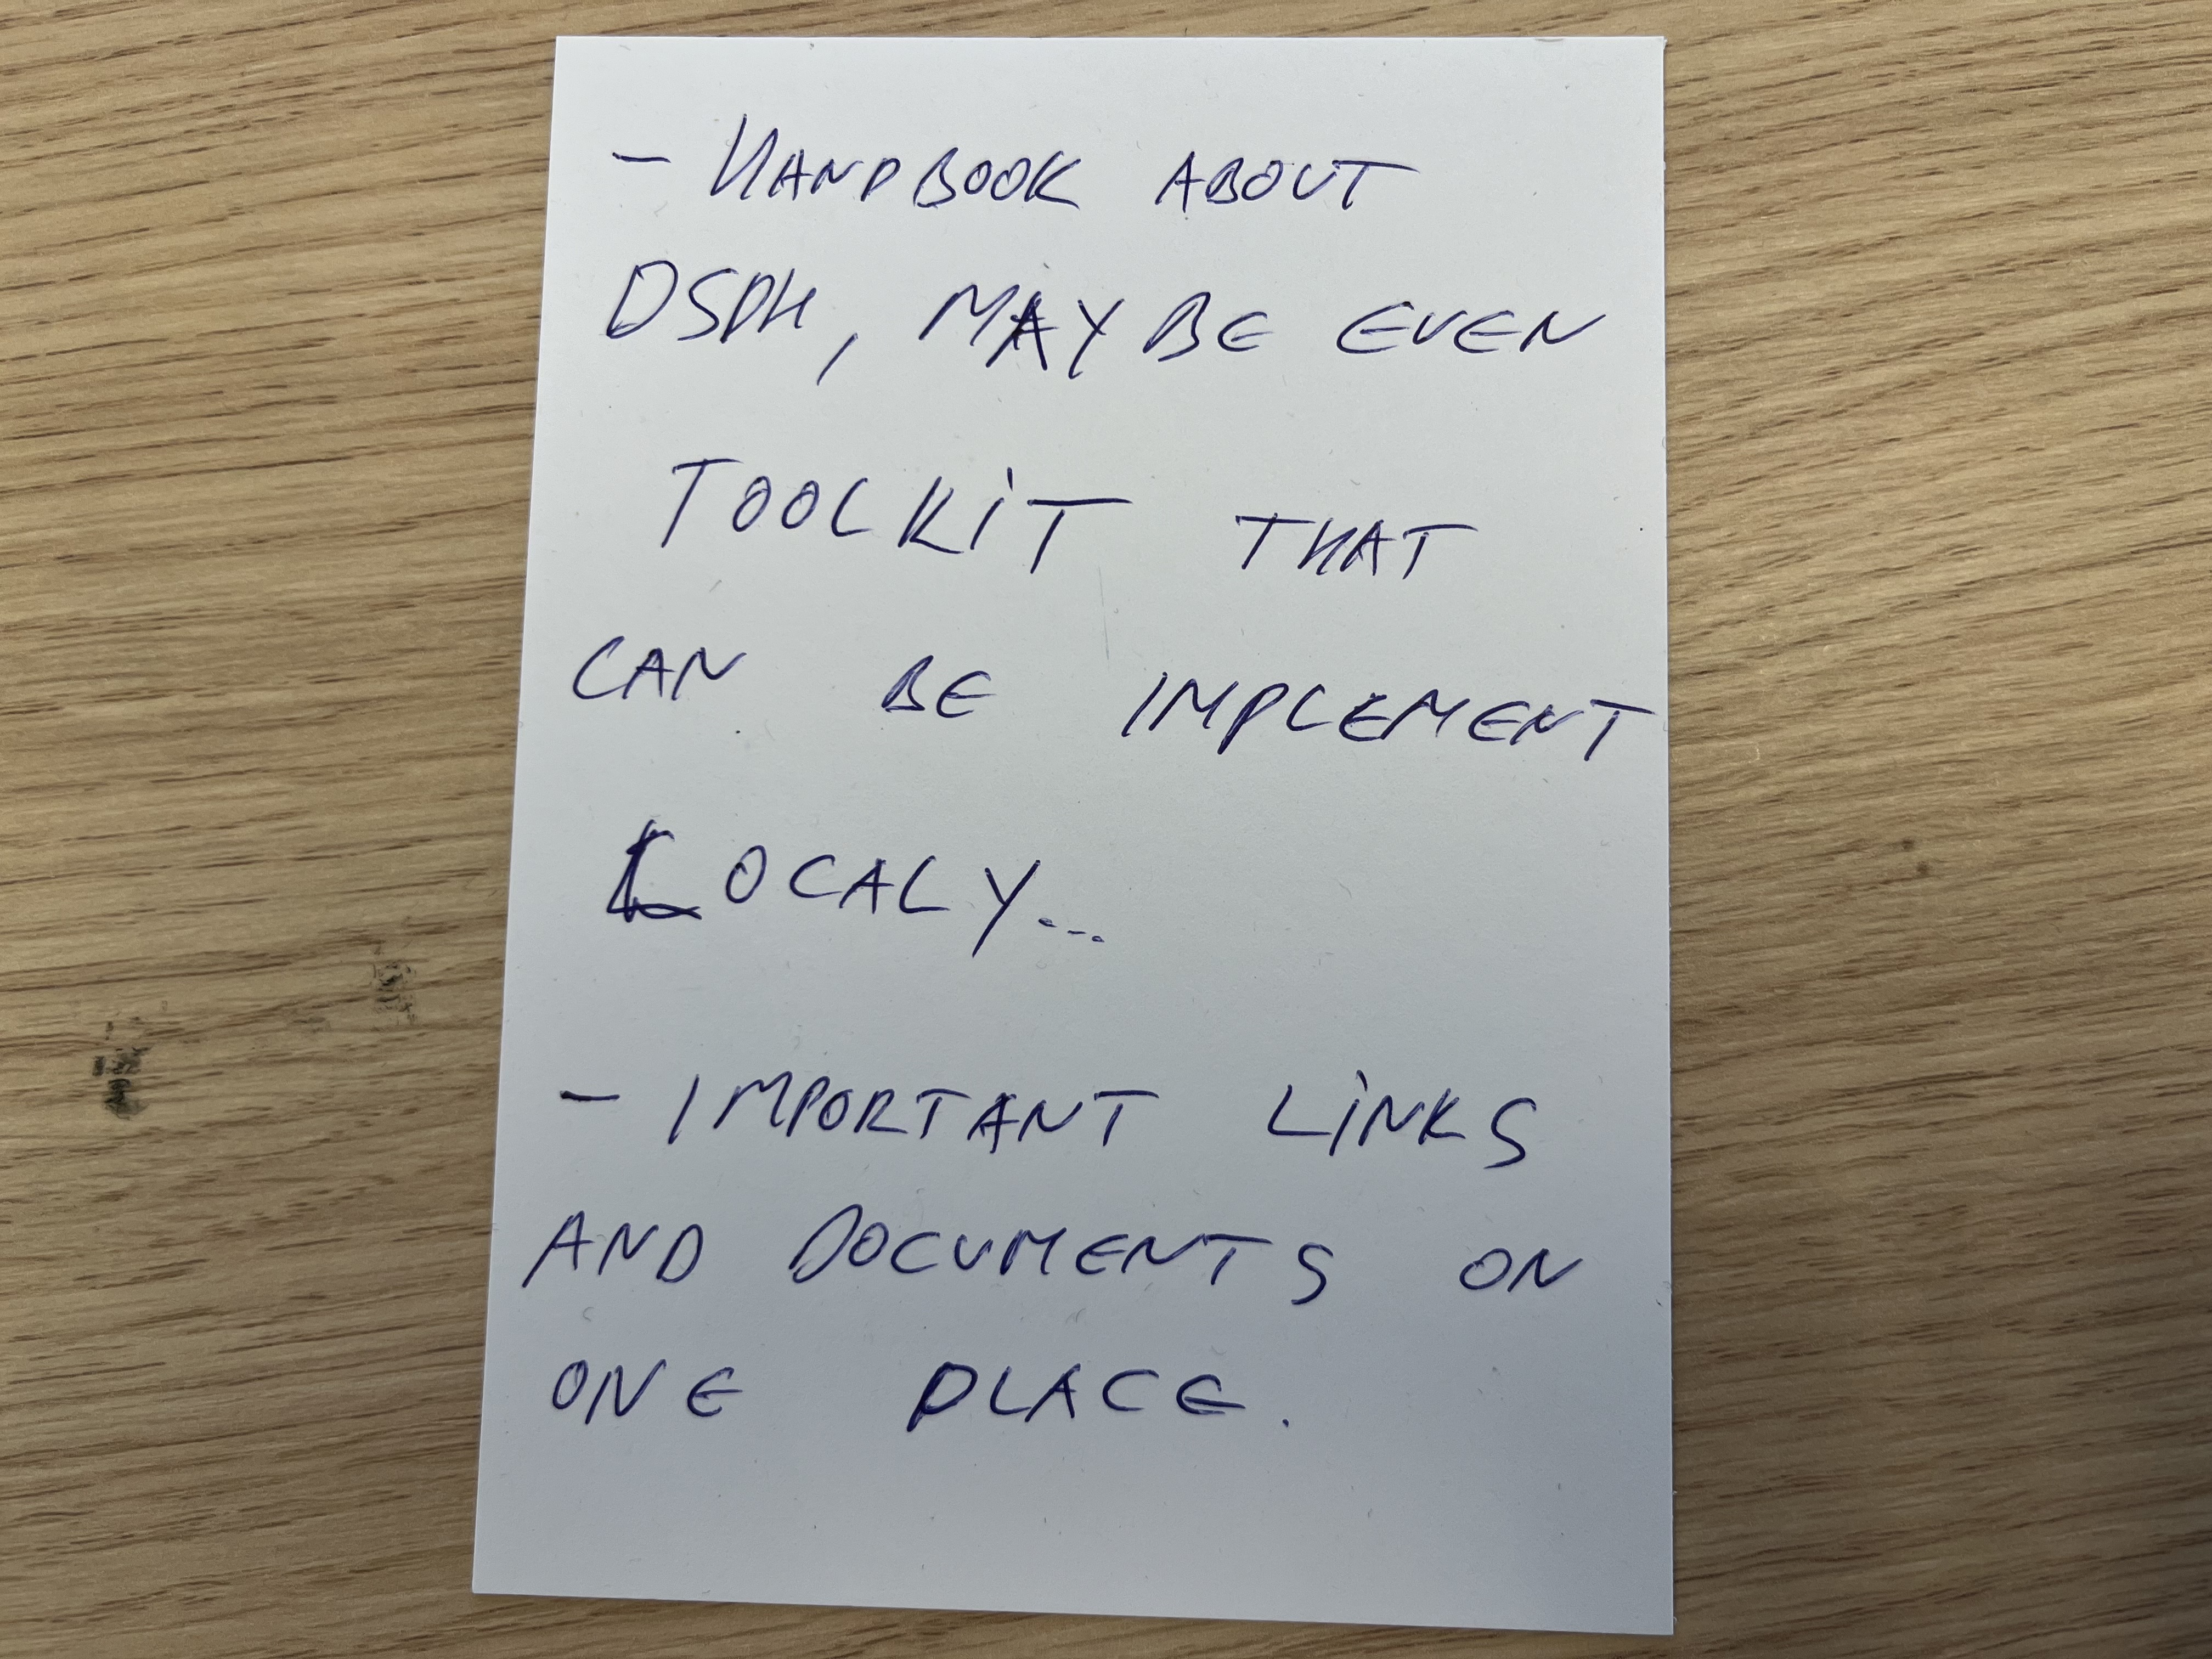 - HANDBOOK ABOUT
DSDH, MAYBE EVEN
TOOLKIT THAT
CAN BE IMPLEMENT
LOCALY...
- IMPORTANT LINKS
AND DOCUMENTS ON
ONE PLACE.